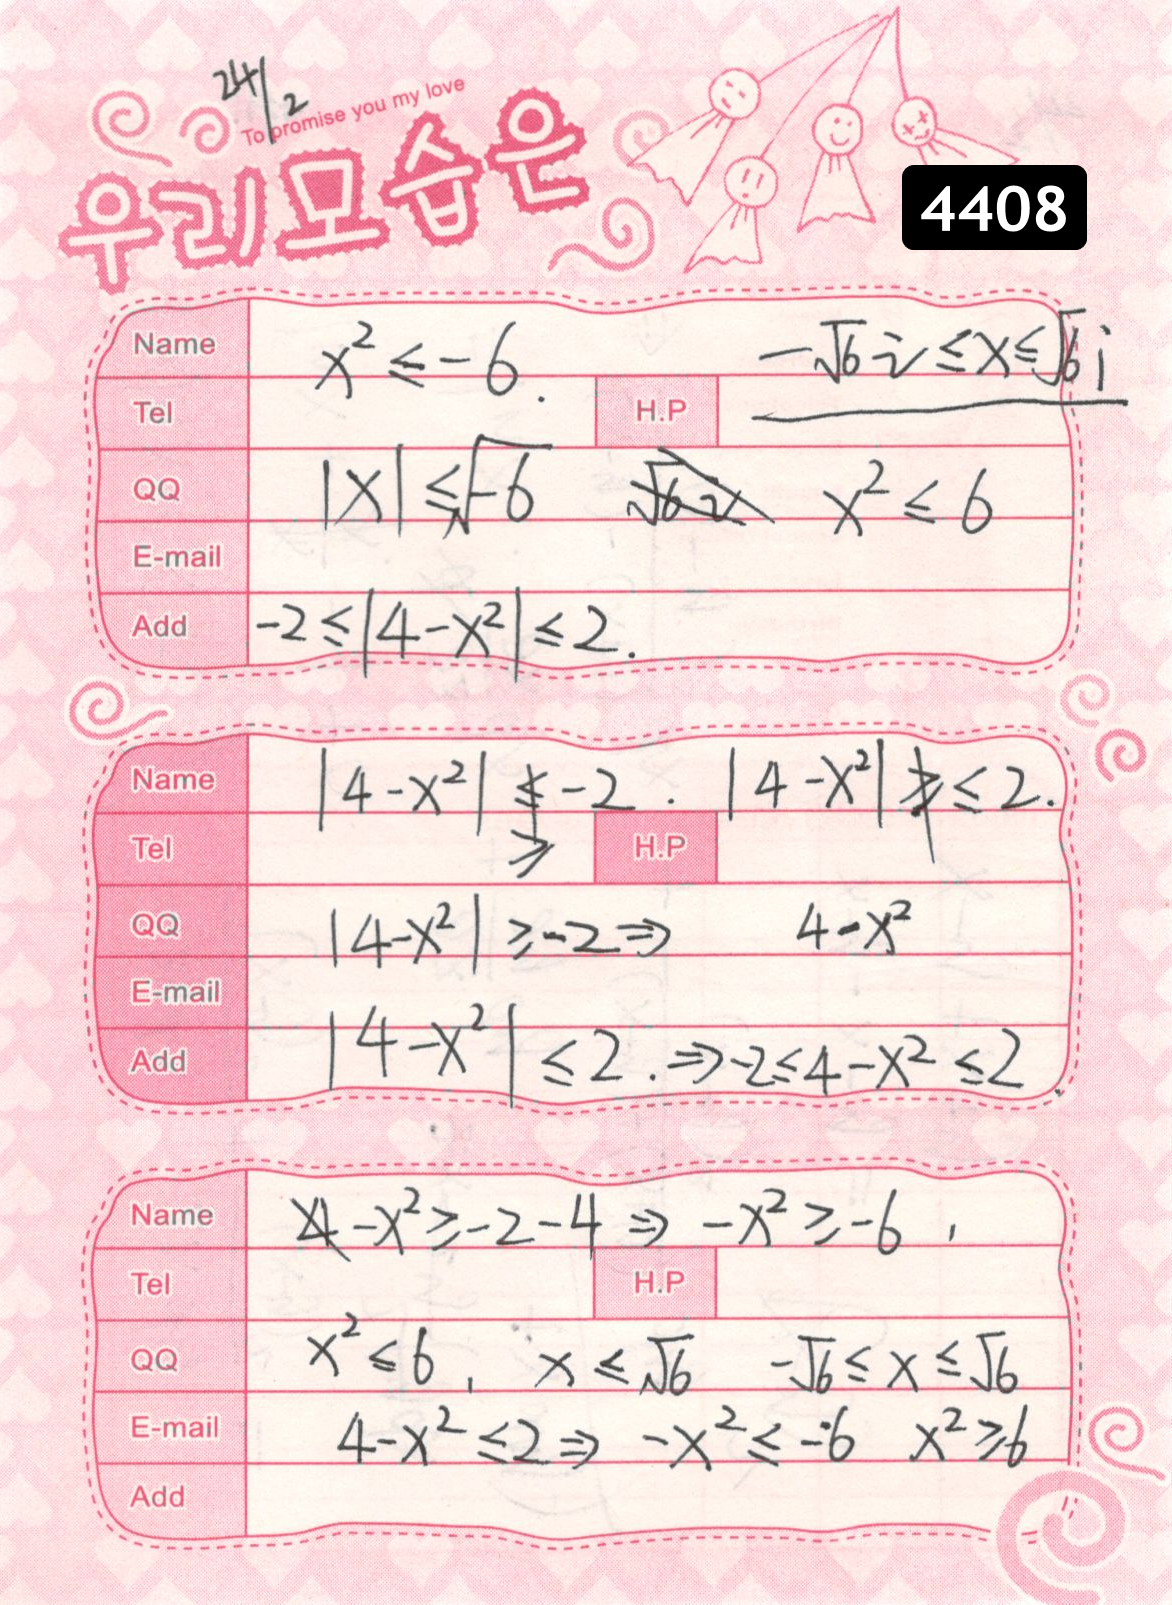 24/2
To promise you my love
우리모습은
4408
Name x² ≤ -6. -√6 i ≤ x ≤ √6 i
Tel H.P
QQ |x| ≤ √-6 √6 i x² ≤ 6
E-mail
Add -2 ≤ |4-x²| ≤ 2.
Name |4-x²| ≤ -2. |4-x²| ≥ ≤ 2.
Tel ≥ H.P
QQ |4-x²| ≥ -2 ⇒ 4-x²
E-mail
Add |4-x²| ≤ 2. ⇒ -2 ≤ 4-x² ≤ 2
Name 4-x² ≥ -2-4 ⇒ -x² ≥ -6,
Tel H.P
QQ x² ≤ 6, x ≤ √6 -√6 ≤ x ≤ √6
E-mail 4-x² ≤ 2 ⇒ -x² ≤ -6 x² ≥ 6
Add